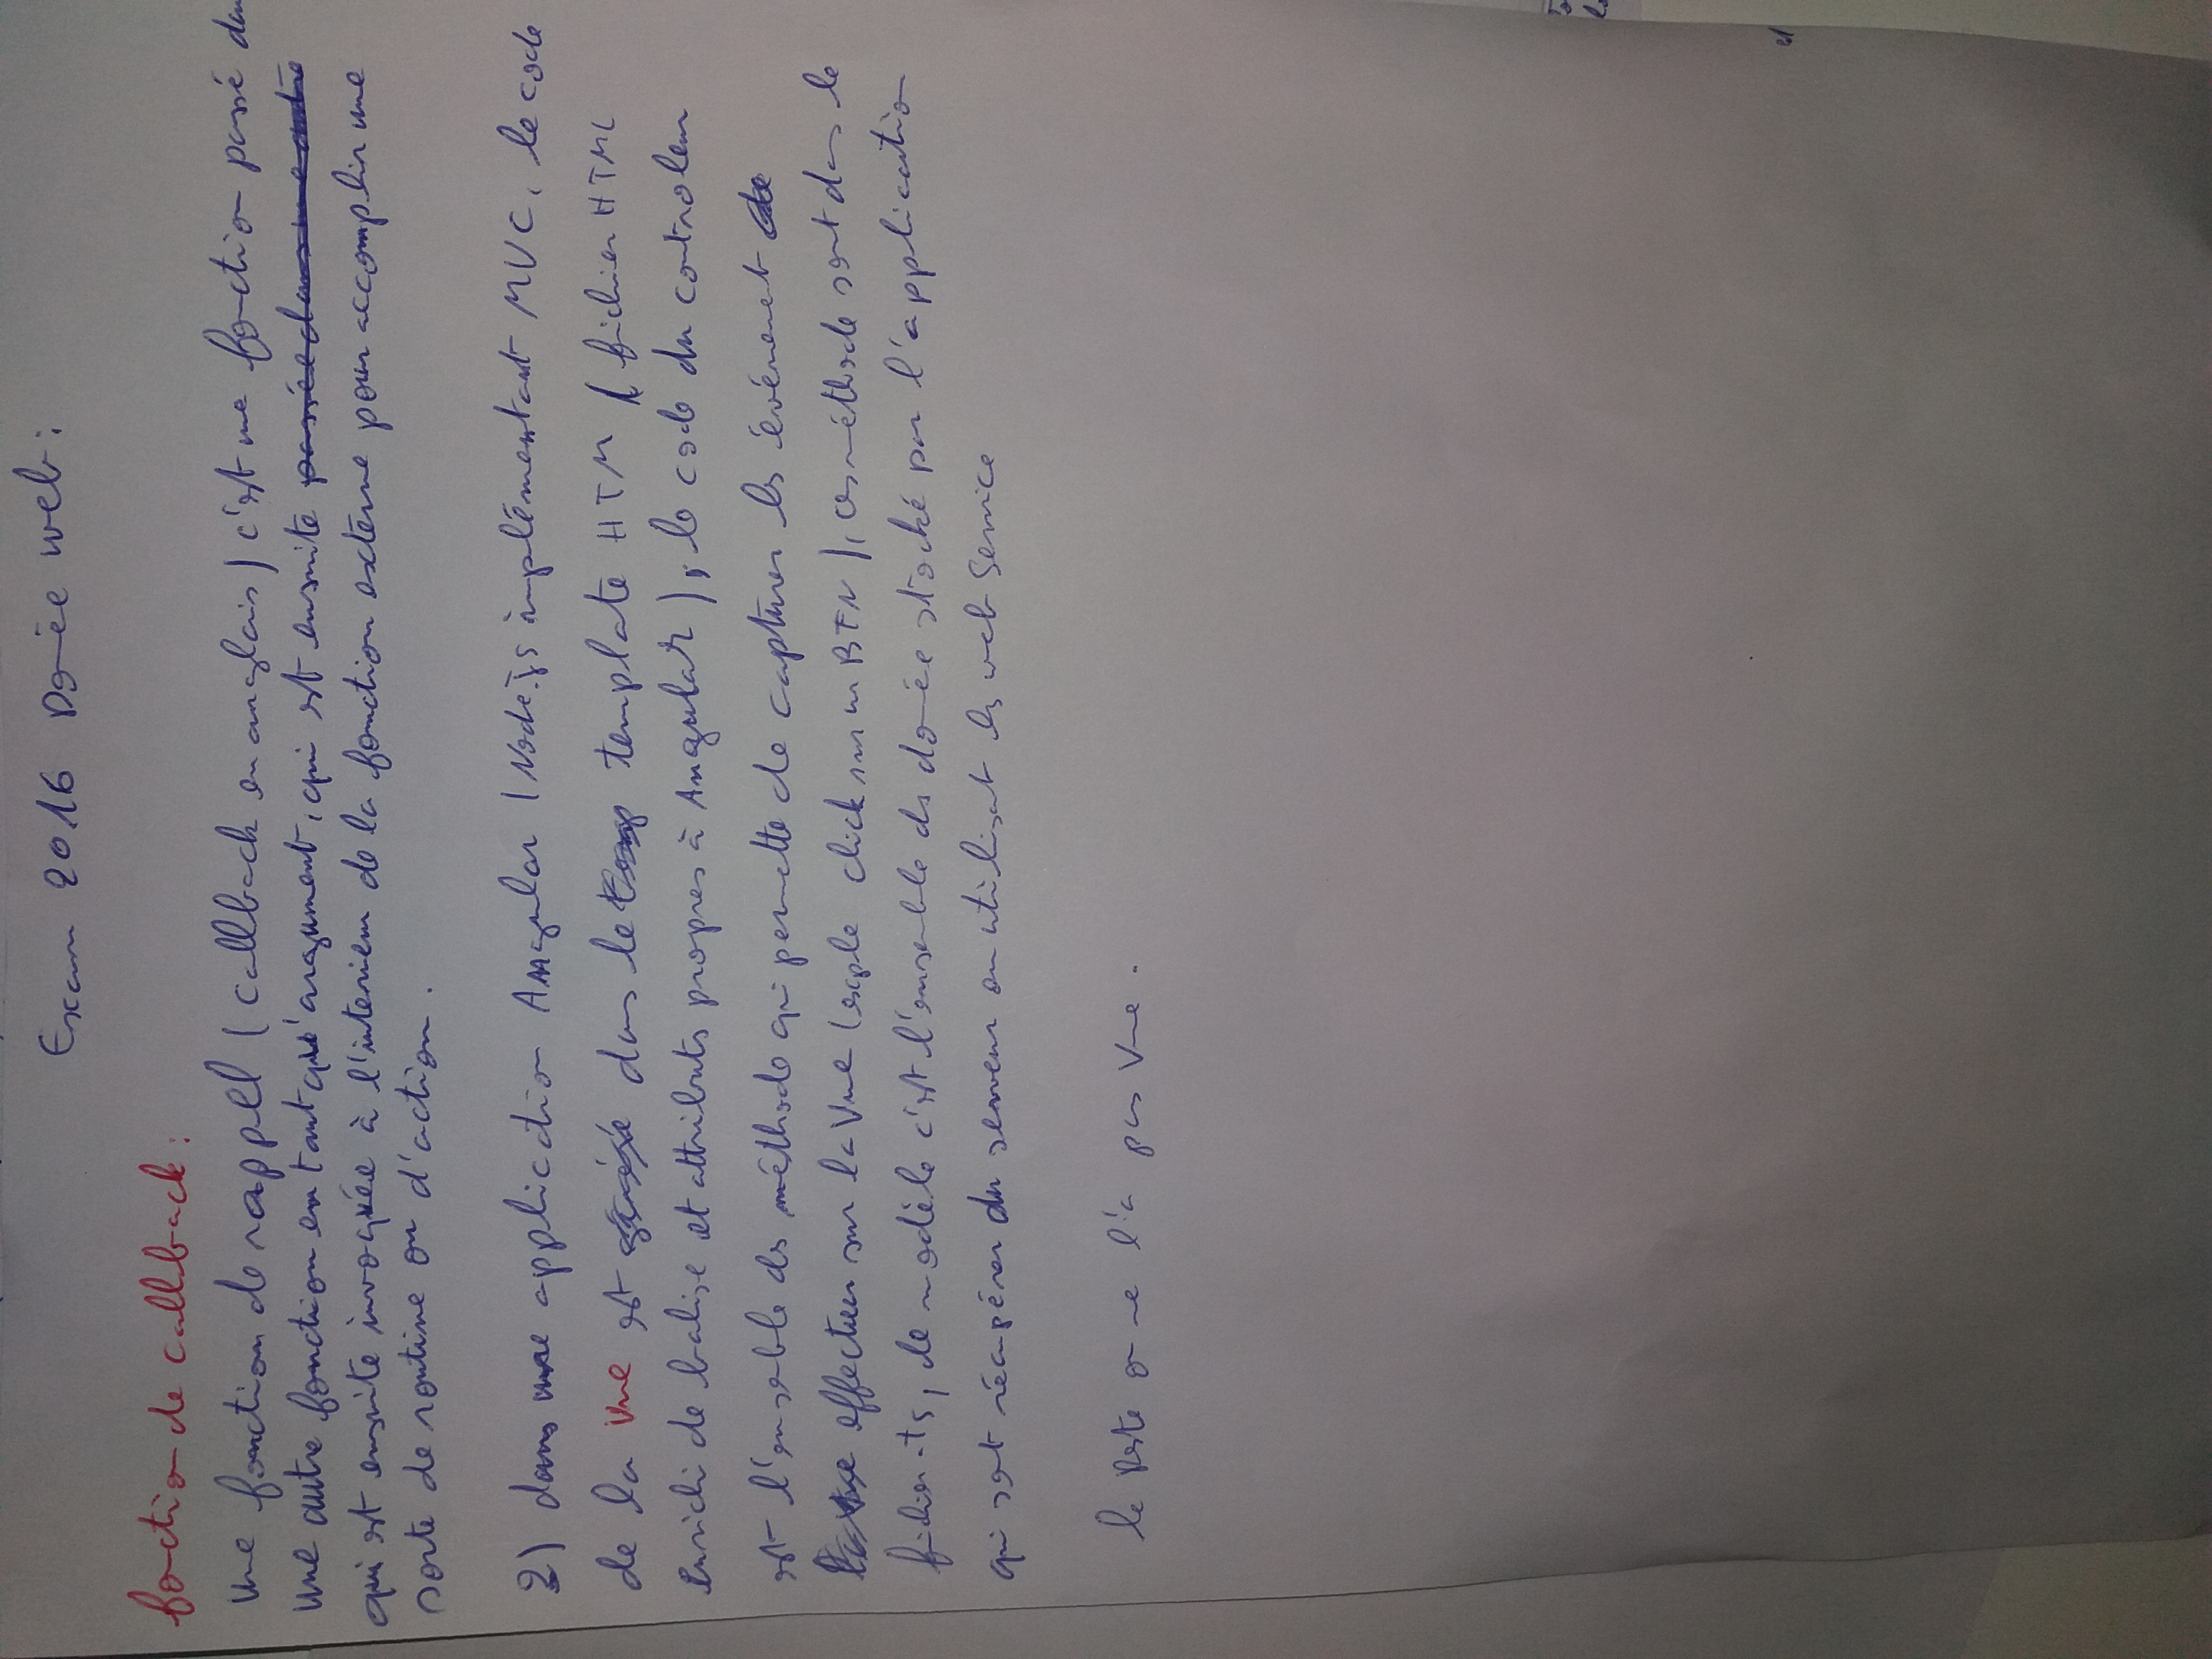 Exam 2016 Donée web :
fonction de callback :
Une fonction de rappel ( callback en anglais ) c'est une fonction passé dan
une autre fonction en tant qu'argument, qui est ensuite passée dans une autre
qui est ensuite invoquée à l'interieur de la fonction externe pour accomplir une
sorte de routine ou d'action .
2) dans une application Angular / Node.js implémentant MVC, le code
de la Vue est dans le template HTM ( fichier HTML
enrichi de balise et attributs propres à Angular ) , le code du controleur
est l'ensemble des méthode qui permette de capturer les événement de
effectuer sur la Vue ( exple click sur un BTN ) , ces méthode sont dans le
fichier .ts , le modèle c'est l'ensemble des donée stocké par l'application
qui sont récupérer du serveur en utilisant les web Service
le Reste on ne l'a pas Vue .